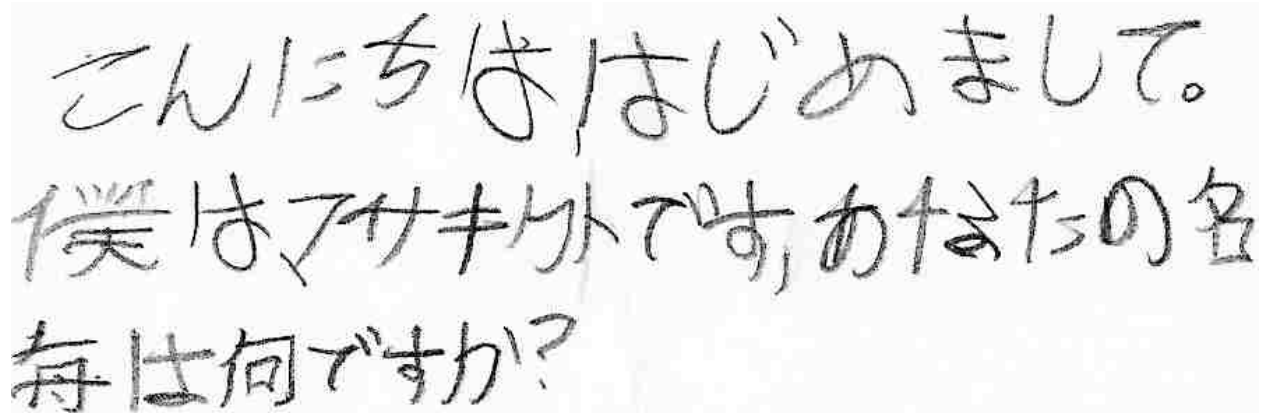 こんにちは,はじめまして。
僕は、マサキクトです,あなたの名
毎は何ですか?